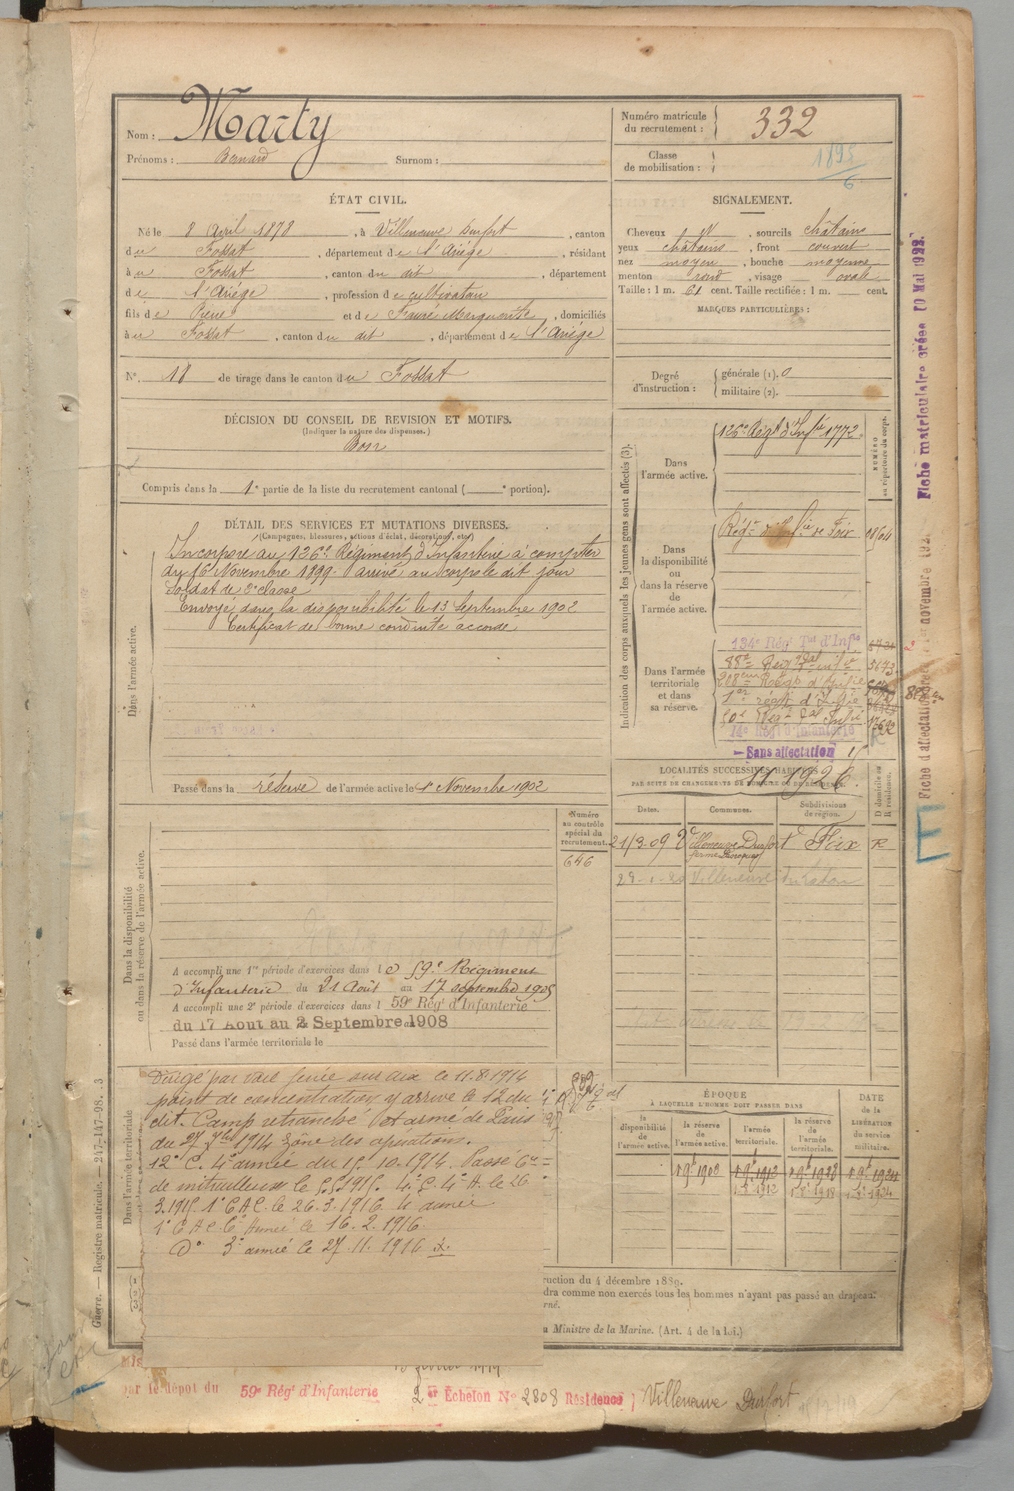 Nom : Marty
Prénoms : Bernard Surnom :
Numéro matricule du recrutement : 332
Classe de mobilisation : 1895
6
ÉTAT CIVIL.
Né le 8 Avril 1878, à Villeneuve Durfort, canton
du Fossat, département de l'Ariège, résidant
à u Fossat, canton du dit, département
de l'Ariège, profession de cultivateur
fils de Pierre et de Faure Marguerite, domiciliés
à u Fossat, canton du dit, département de l'Ariège
N° 18 de tirage dans le canton du Fossat
SIGNALEMENT.
Cheveux et sourcils châtains
yeux châtains, front couvert
nez moyen, bouche moyenne
menton rond, visage ovale
Taille : 1 m. 61 cent. Taille rectifiée : 1 m. cent.
MARQUES PARTICULIÈRES :
Degré d'instruction : générale (1). 0
militaire (2).
DÉCISION DU CONSEIL DE REVISION ET MOTIFS.
(Indiquer la nature des dispenses.)
Bon
Compris dans la 1e partie de la liste du recrutement cantonal ( e portion).
DÉTAIL DES SERVICES ET MUTATIONS DIVERSES.
(Campagnes, blessures, actions d'éclat, décorations, etc.)
Dans l'armée active.
Incorporé au 126e Régiment d'Infanterie à compter
du 16 Novembre 1899 arrivé au corps le dit jour
soldat de 2e classe
Envoyé dans la disponibilité le 13 Septembre 1902
Certificat de bonne conduite accordé
Passé dans la réserve de l'armée active le 1er Novembre 1902
Indication des corps auxquels les jeunes gens sont affectés (3).
NUMÉRO au répertoire du corps.
Dans l'armée active.
126e Régt d'Infie 1772
Dans la disponibilité ou dans la réserve de l'armée active.
Régt d'Infie de Foix 01864
Dans l'armée territoriale et dans sa réserve.
134e Régt Tal d'Infie
14e Régt d'Infanterie
Sans affectation
Fiche matriculaire créée 10 Mai 1922.
LOCALITÉS SUCCESSIVES HABITÉES
PAR SUITE DE CHANGEMENTS DE DOMICILE OU DE RÉSIDENCE.
Dates. Communes. Subdivisions de région. D domicile ou R résidence.
21/3-09 Villeneuve Durfort Foix R
Villeneuve
Dans la disponibilité ou dans la réserve de l'armée active.
Numéro au contrôle spécial du recrutement.
646
A accompli une 1re période d'exercices dans le 59e Régiment
d'Infanterie du 21 Août au 17 septembre 1905
A accompli une 2e période d'exercices dans l 59e Régt d'Infanterie
du 17 Aout au 2 Septembre 1908
Passé dans l'armée territoriale le
Dans l'armée territoriale
Dirigé par voie ferrée sur aux le 11.8.1914
point de concentration y arrive le 12 du
dit. Camp retranché et armé de Paris
du 27 7bre 1914 zône des opérations.
12e C. 4e armée du 15. 10. 1914. Passé Cie
de mitrailleuses le 5.5.1915. 4e C. 4e A. le 26
3.1915. 1e C A C. le 26.3.1916 4e armée
1e C A C. 6e Armée le 16. 2. 1916.
Do 3e armée le 27. 11. 1916
ÉPOQUE
À LAQUELLE L'HOMME DOIT PASSER DANS
la disponibilité de l'armée active.
la réserve de l'armée active.
l'armée territoriale.
la réserve de l'armée territoriale.
DATE de la LIBÉRATION du service militaire.
1 9bre 1902
1 8bre 1912 1 8bre 1918 1 8bre 1924
ruction du 4 décembre 1889.
dra comme non exercés tous les hommes n'ayant pas passé au drapeau.
rné.
u Ministre de la Marine. (Art. 4 de la loi.)
Guerre. — Registre matricule. — 247-147-98.
par le dépot du 59e Régt d'Infanterie 2er Échelon N° 2808 Résidence Villeneuve Durfort